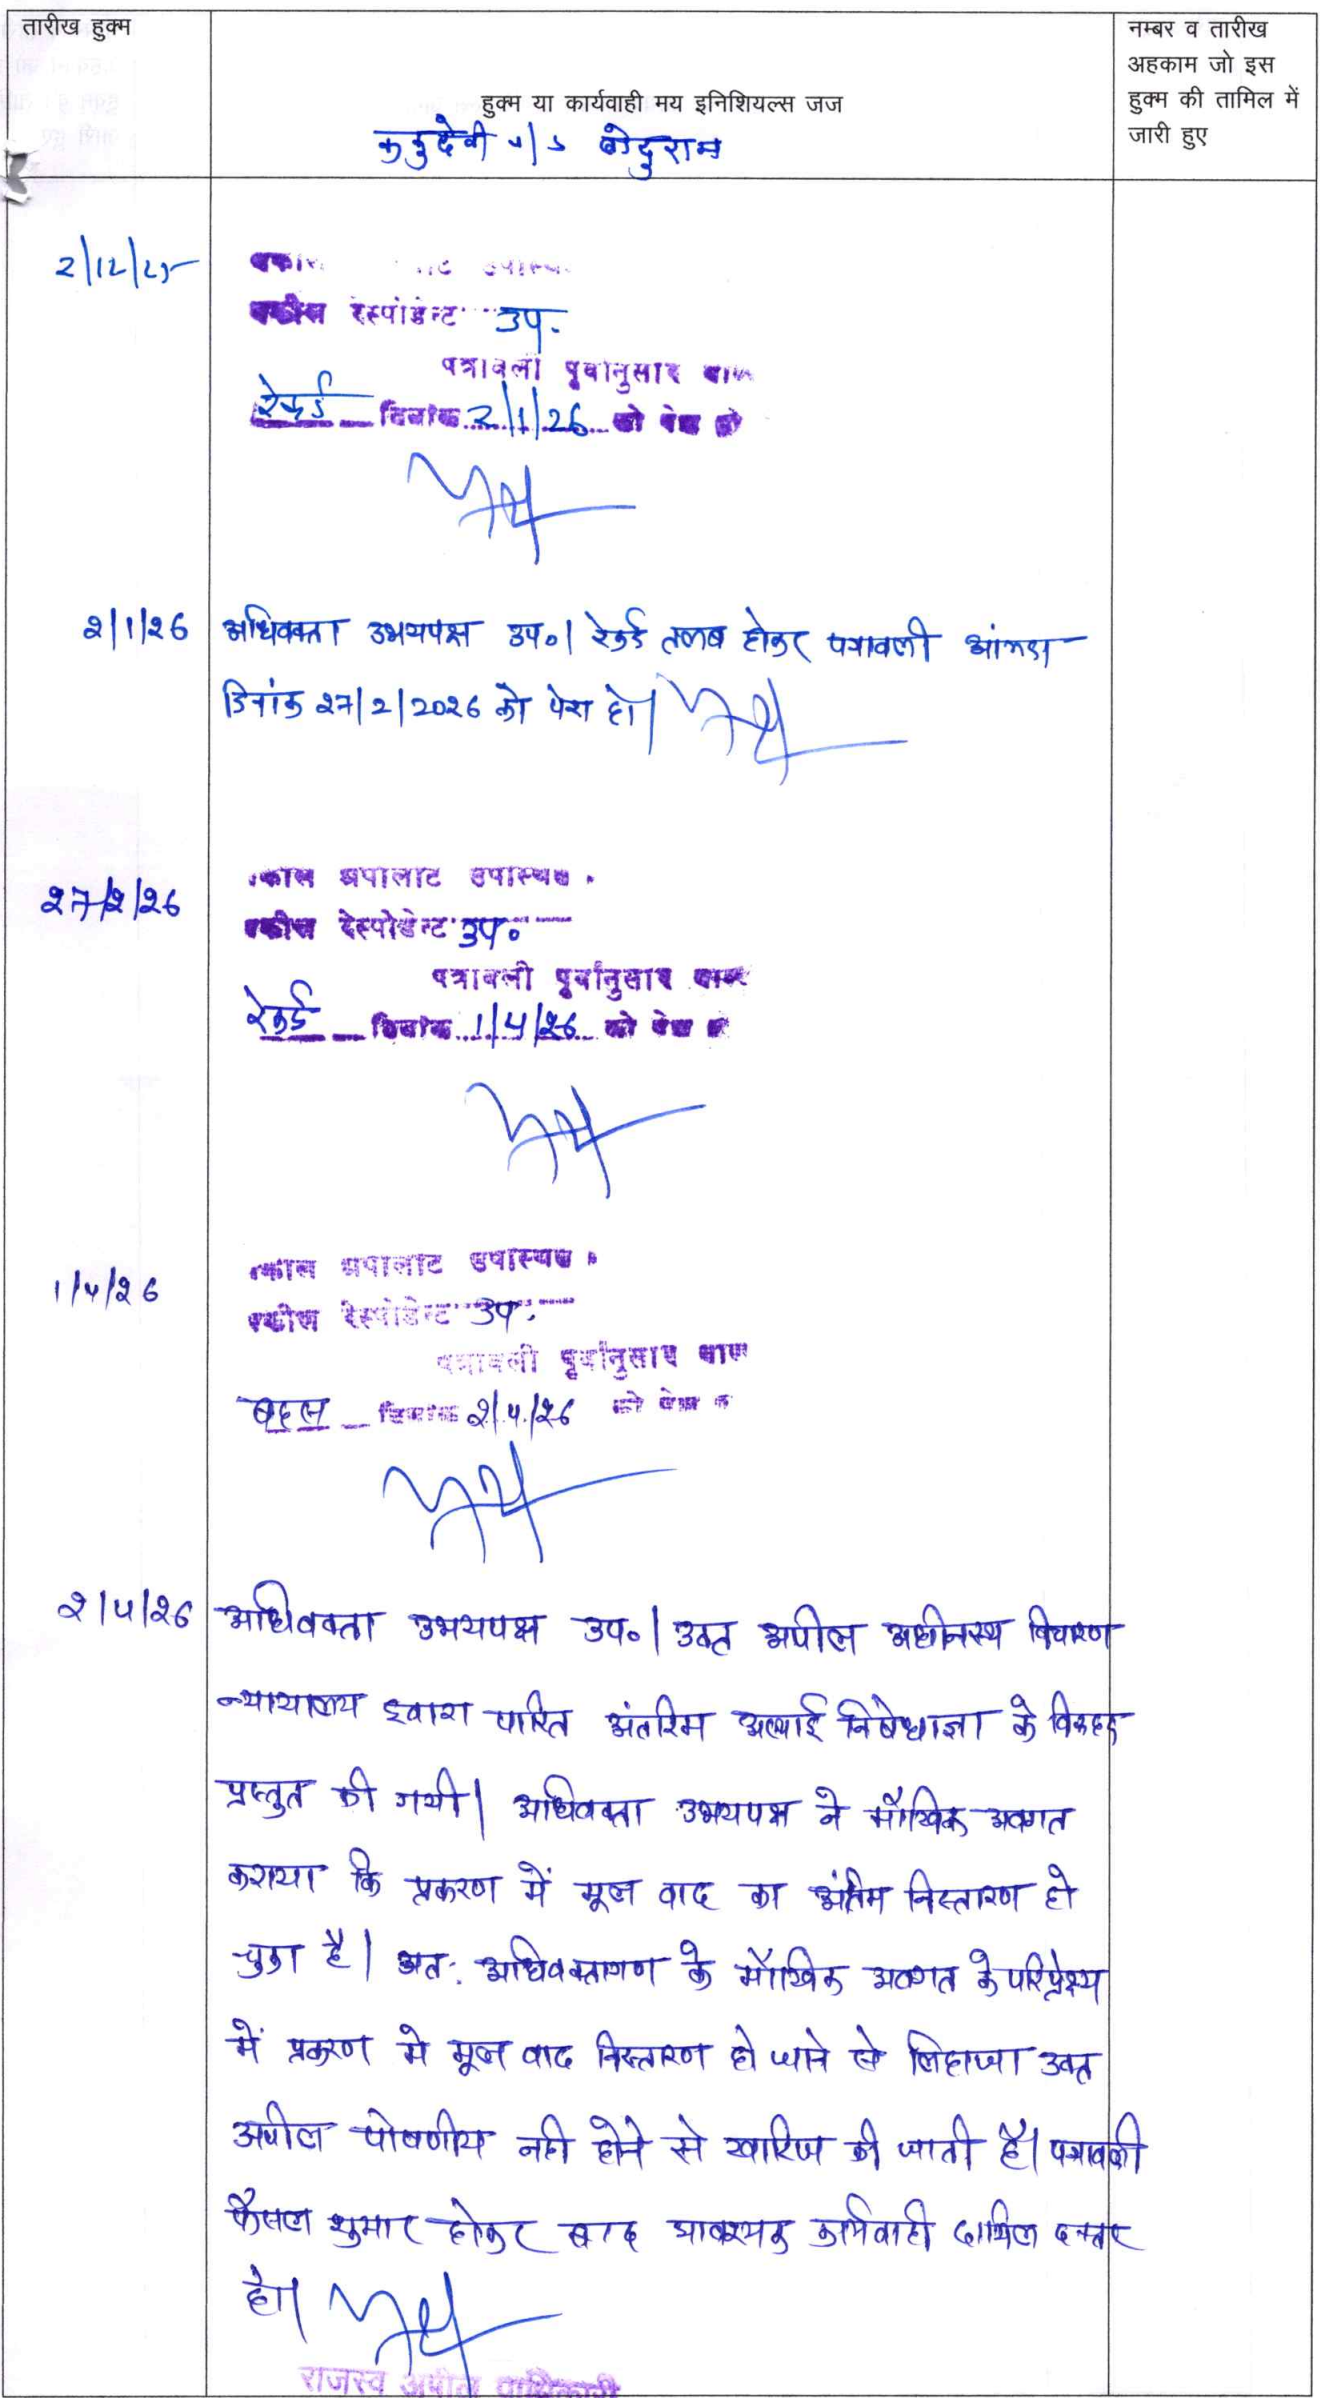 तारीख हुक्म
हुक्म या कार्यवाही मय इनिशियल्स जज
नम्बर व तारीख
अहकाम जो इस
हुक्म की तामिल में
जारी हुए
v/s
2/12/25
रेस्पांडेन्ट उप.
पत्रावली पूर्वानुसार वास्ते
रेकर्ड दिनांक 2/1/26 को पेश हो
2/1/26
अधिवक्ता उभयपक्ष उप०। रेकर्ड तलब होकर पत्रावली आंईन्दा
दिनांक 27/2/2026 को पेश हो।
27/2/26
वकील अपीलांट उपस्थित .
वकील रेस्पोडेन्ट उप०
पत्रावली पूर्वानुसार वास्ते
रेकर्ड दिनांक 1/4/26 को पेश
1/4/26
वकील अपीलांट उपस्थित
वकील रेस्पोडेन्ट उप.
पत्रावली पूर्वानुसार वास्ते
बहस दिनांक 2/4/26 को पेश
2/4/26
अधिवक्ता उभयपक्ष उप०। उक्त अपील अधीनस्थ विचारण
न्यायालय द्वारा पारित अंतरिम अस्थाई निषेधाज्ञा के विरूद्ध
प्रस्तुत की गयी। अधिवक्ता उभयपक्ष ने मौखिक अवगत
कराया कि प्रकरण में मूल वाद का अंतिम निस्तारण हो
चुका है। अत: अधिवक्तागण के मौखिक अवगत के परिप्रेक्ष्य
में प्रकरण मे मूल वाद निस्तारण हो जाने से लिहाजा उक्त
अपील पोषणीय नही होने से खारिज की जाती है। पत्रावली
फैसल शुमार होकर बाद आवश्यक कार्यवाही दाखिल दफ्तर
हो।
राजस्व अपील प्राधिकारी